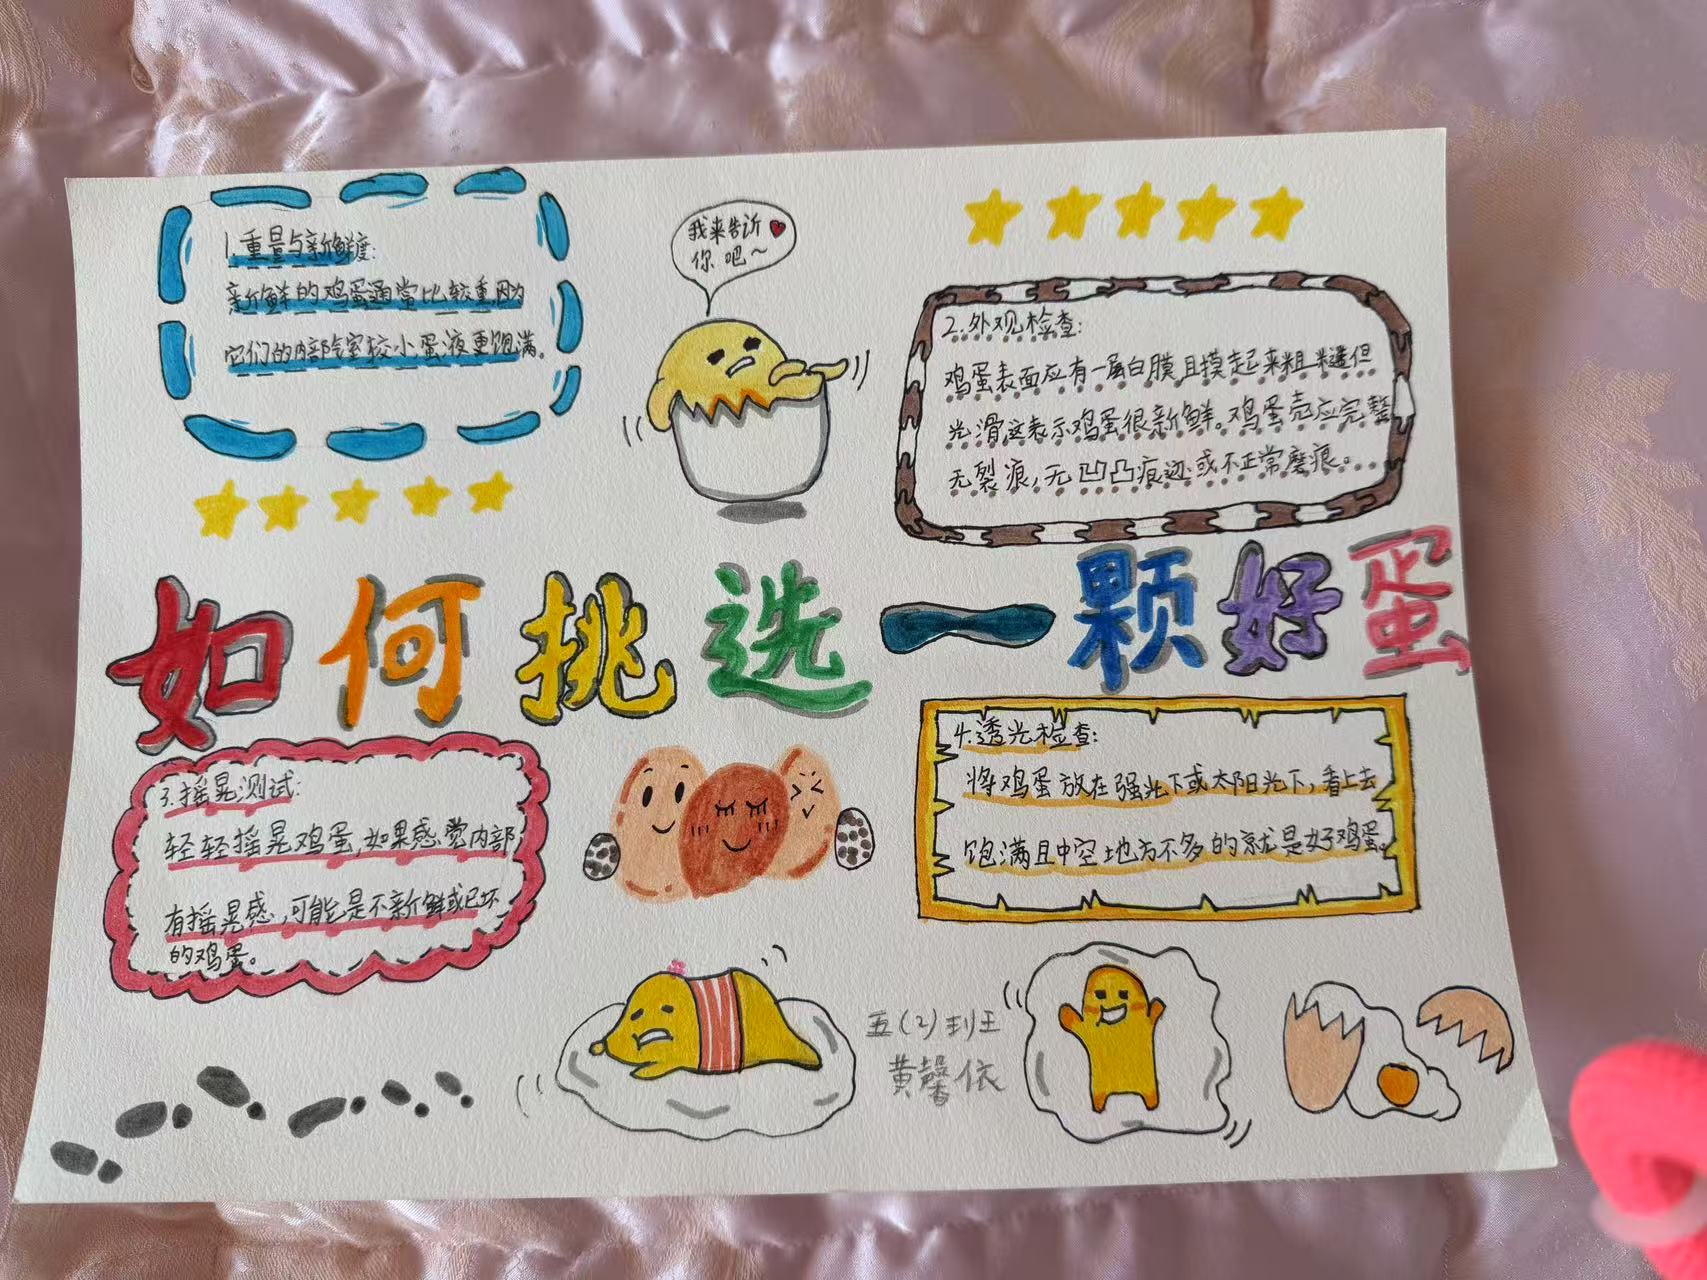 1.重量与新鲜度:
新鲜的鸡蛋通常比较重,因为
它们的内部气室较小,蛋液重饱满。
我来告诉
你吧~
2.外观检查:
鸡蛋表面应有一层白膜且摸起来粗糙但
光滑这表示鸡蛋很新鲜。鸡蛋壳应完整
无裂痕,无凹凸痕迹或不正常磨痕。
如何挑选一颗好蛋
3.摇晃测试:
轻轻摇晃鸡蛋,如果感觉内部
有摇晃感,可能是不新鲜或已坏
的鸡蛋。
4.透光检查:
将鸡蛋放在强光下或太阳光下,看上去
饱满且中空地方不多的就是好鸡蛋。
五(2)班王
黄馨依